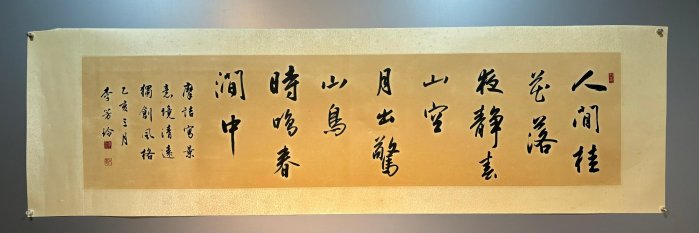 人閒桂
花落
夜靜春
山空
月出驚
山鳥
時鳴春
澗中
摩詰寫景
意境清遠
獨創風格
乙亥三月
李芳玲